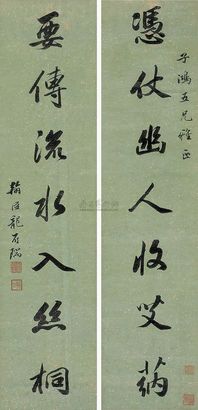 子鴻五兄雅正
憑仗幽人收艾蒳
要傳流水入絲桐
翰臣龍啟瑞